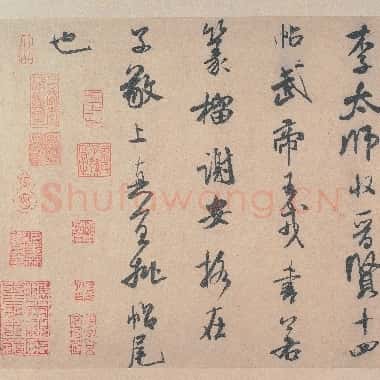 李太師收晉賢十四
帖武帝王戎書若
篆籀謝安格在
子敬上真宜批帖尾
也
Shufawang.CN